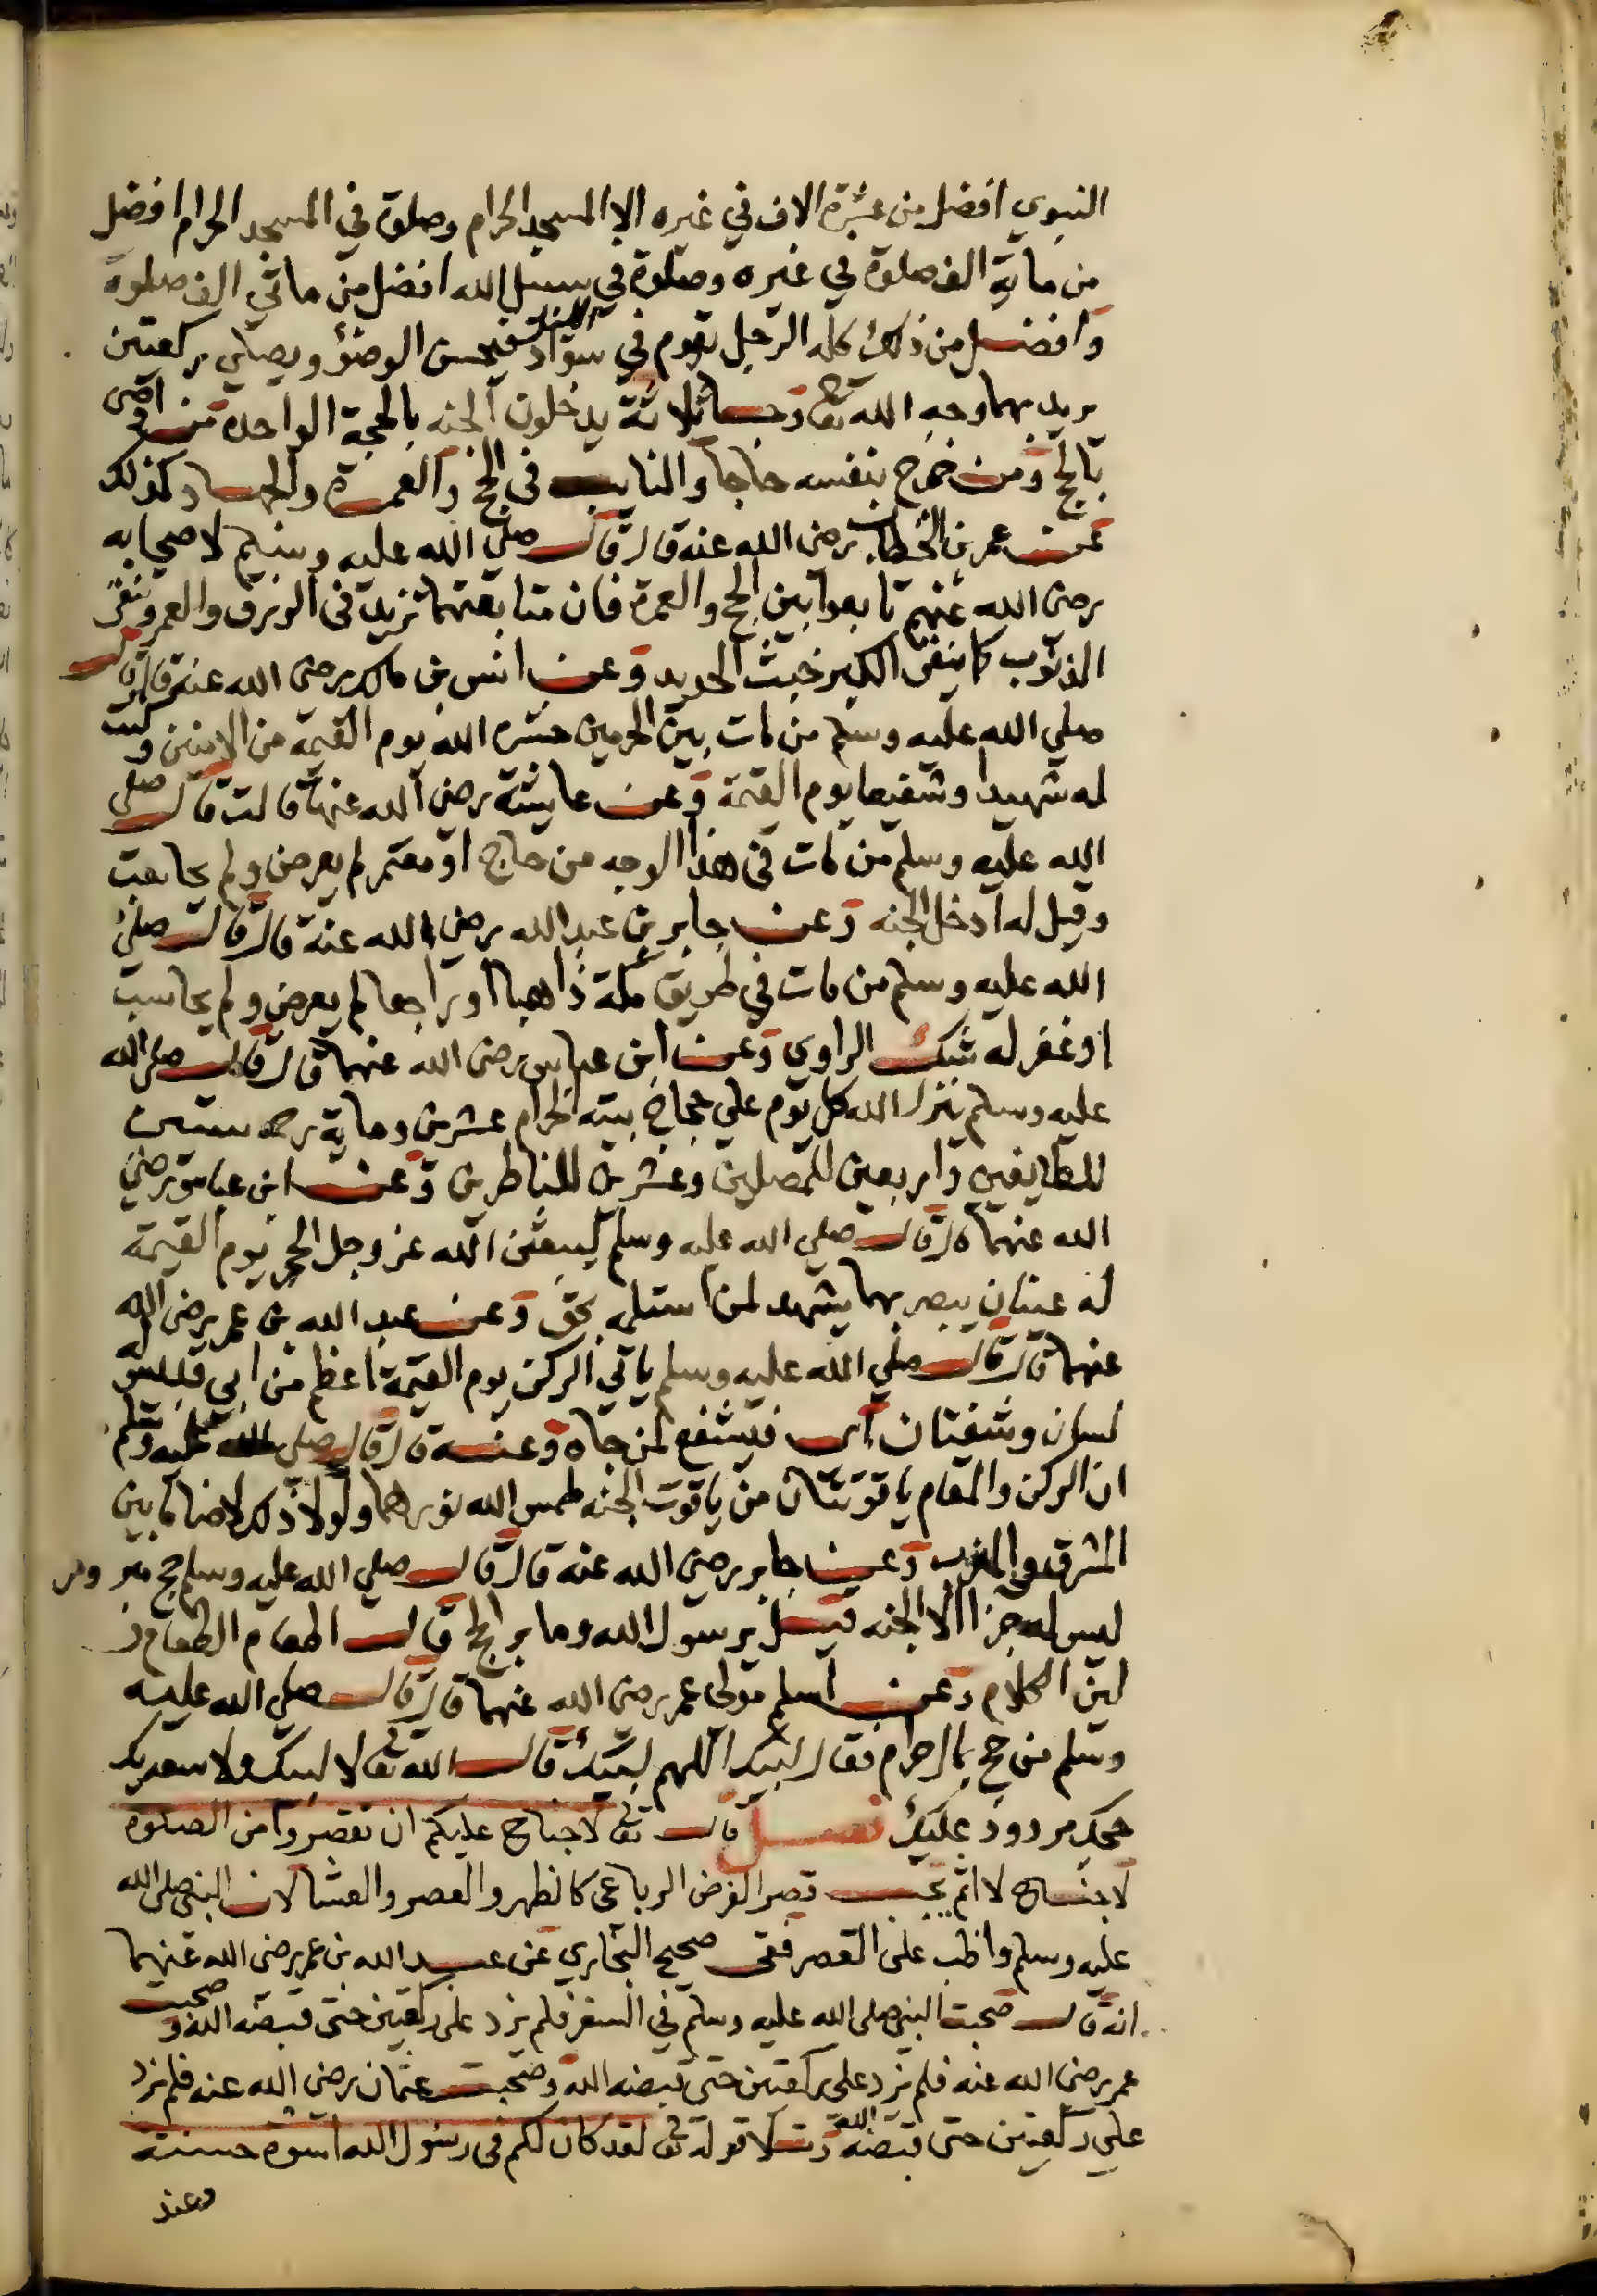 النبوي افضل من عشرة الاف في غيره الا المسجد الحرام وصلوة في المسجد الحرام افضل
من ماية الف صلوة في غيره وصلوة في سبيل الله افضل من ماتي الف صلوة
وافضل من ذلك كله الرجل يقوم في سواد الليل فيحسن الوضؤ ويصلي ركعتين
يريد بهما وجه الله تع وجا ثلاثة يدخلون الجنه بالحجة الواحدة من اوصى
بالحج ومن خرج بنفسه حاجا والنايب في الحج والعمرة والجهاد كذلك
عن عمر بن الخطاب رضى الله عنه قال قال صلي الله عليه وسلم لاصحابه
رضى الله عنهم تابعوا بين الحج والعمرة فان متابعتهما تزيد في الرزق والعمر وتنفى
الذنوب كما ينفى الكير خبث الحديد وعن انس بن مالك رضى الله عنه قال قال
صلي الله عليه وسلم من مات بين الحرمين حشره الله يوم القيمة من الامنين وكنت
له شهيدا وشفيعا يوم القيمة وعن عايشة رضى الله عنها قالت قال صلى
الله عليه وسلم من مات في هذا الوجه من حاج او معتمر لم يعرض ولم يحاسب
وقيل له ادخل الجنه وعن جابر بن عبد الله رضى الله عنه قال قال صلى
الله عليه وسلم من مات في طريق مكة ذاهبا او راجعا لم يعرض ولم يحاسب
او غفر له شك الراوي وعن ابن عباس رضى الله عنهما قال قال صلى الله
عليه وسلم ينزل الله كل يوم علي حجاج بيته الحرام عشرين وماية رحمه ستين
للطايفين واربعين للمصلين وعشرين للناظرين وعن ابن عباس رضي
الله عنهما قال قال صلي الله عليه وسلم ليبعثن الله عز وجل الحجر يوم القيمة
له عينان يبصر بهما يشهد لمن استلمه بحق وعن عبد الله بن عمر رضى الله
عنهما قال قال صلي الله عليه وسلم ياتي الركن يوم القيمة اعظم من ابي قبيس له
لسان وشفتان اى فيشفع لمن جاه وعنه قال قال صلى الله عليه وسلم
ان الركن والمقام ياقوتتان من ياقوت الجنه طمس الله نورهما ولولا ذلك لاضا ما بين
المشرق والمغرب وعن جابر رضى الله عنه قال قال صلي الله عليه وسلم حج مبرور
ليس له جزا الا الجنه قيل يرسول الله وما بر الحج قال اطعام الطعام و
لين الكلام وعن اسلم مولى عمر رضى الله عنهما قال قال صلي الله عليه
وسلم من حج بمال حرام فقال لبيك اللهم لبيك قال الله تع لا لبيك ولا سعديك
حجك مردود عليك فصل قال تع لاجناح عليكم ان تقصروا من الصلوة
لاجناح لا اثم يجب قصر الفرض الرباعى كالظهر والعصر والعشا لان النبى صلى الله
عليه وسلم واظب على القصر ففى صحيح البخاري عن عبد الله بن عمر رضى الله عنهما
انه قال صحبت النبي صلى الله عليه وسلم في السفر فلم يزد على ركعتين حتى قبضه الله وصحبت
عمر رضى الله عنه فلم يزد على ركعتين حتى قبضه الله وصحبت عثمان رضى الله عنه فلم يزد
على ركعتين حتى قبضه الله وتلا قوله تع لقد كان لكم في رسول الله اسوة حسنة
وعند